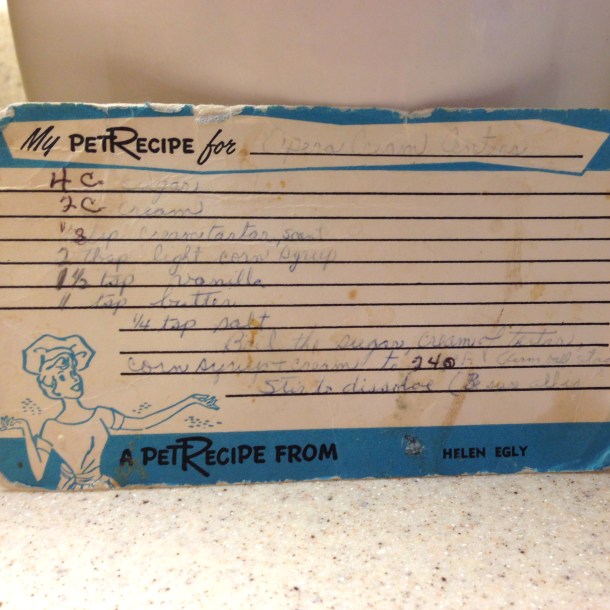 My PETRECIPE for Opera Cream Centers
4 C sugar
2 C cream
1/8 tsp cream tartar, scant
2 tbsp light corn syrup
1 1/2 tsp vanilla
1 tsp butter
1/4 tsp salt
Boil the sugar, cream tartar,
corn syrup + cream to 240
Stir to dissolve
A PETRECIPE FROM HELEN EGLY